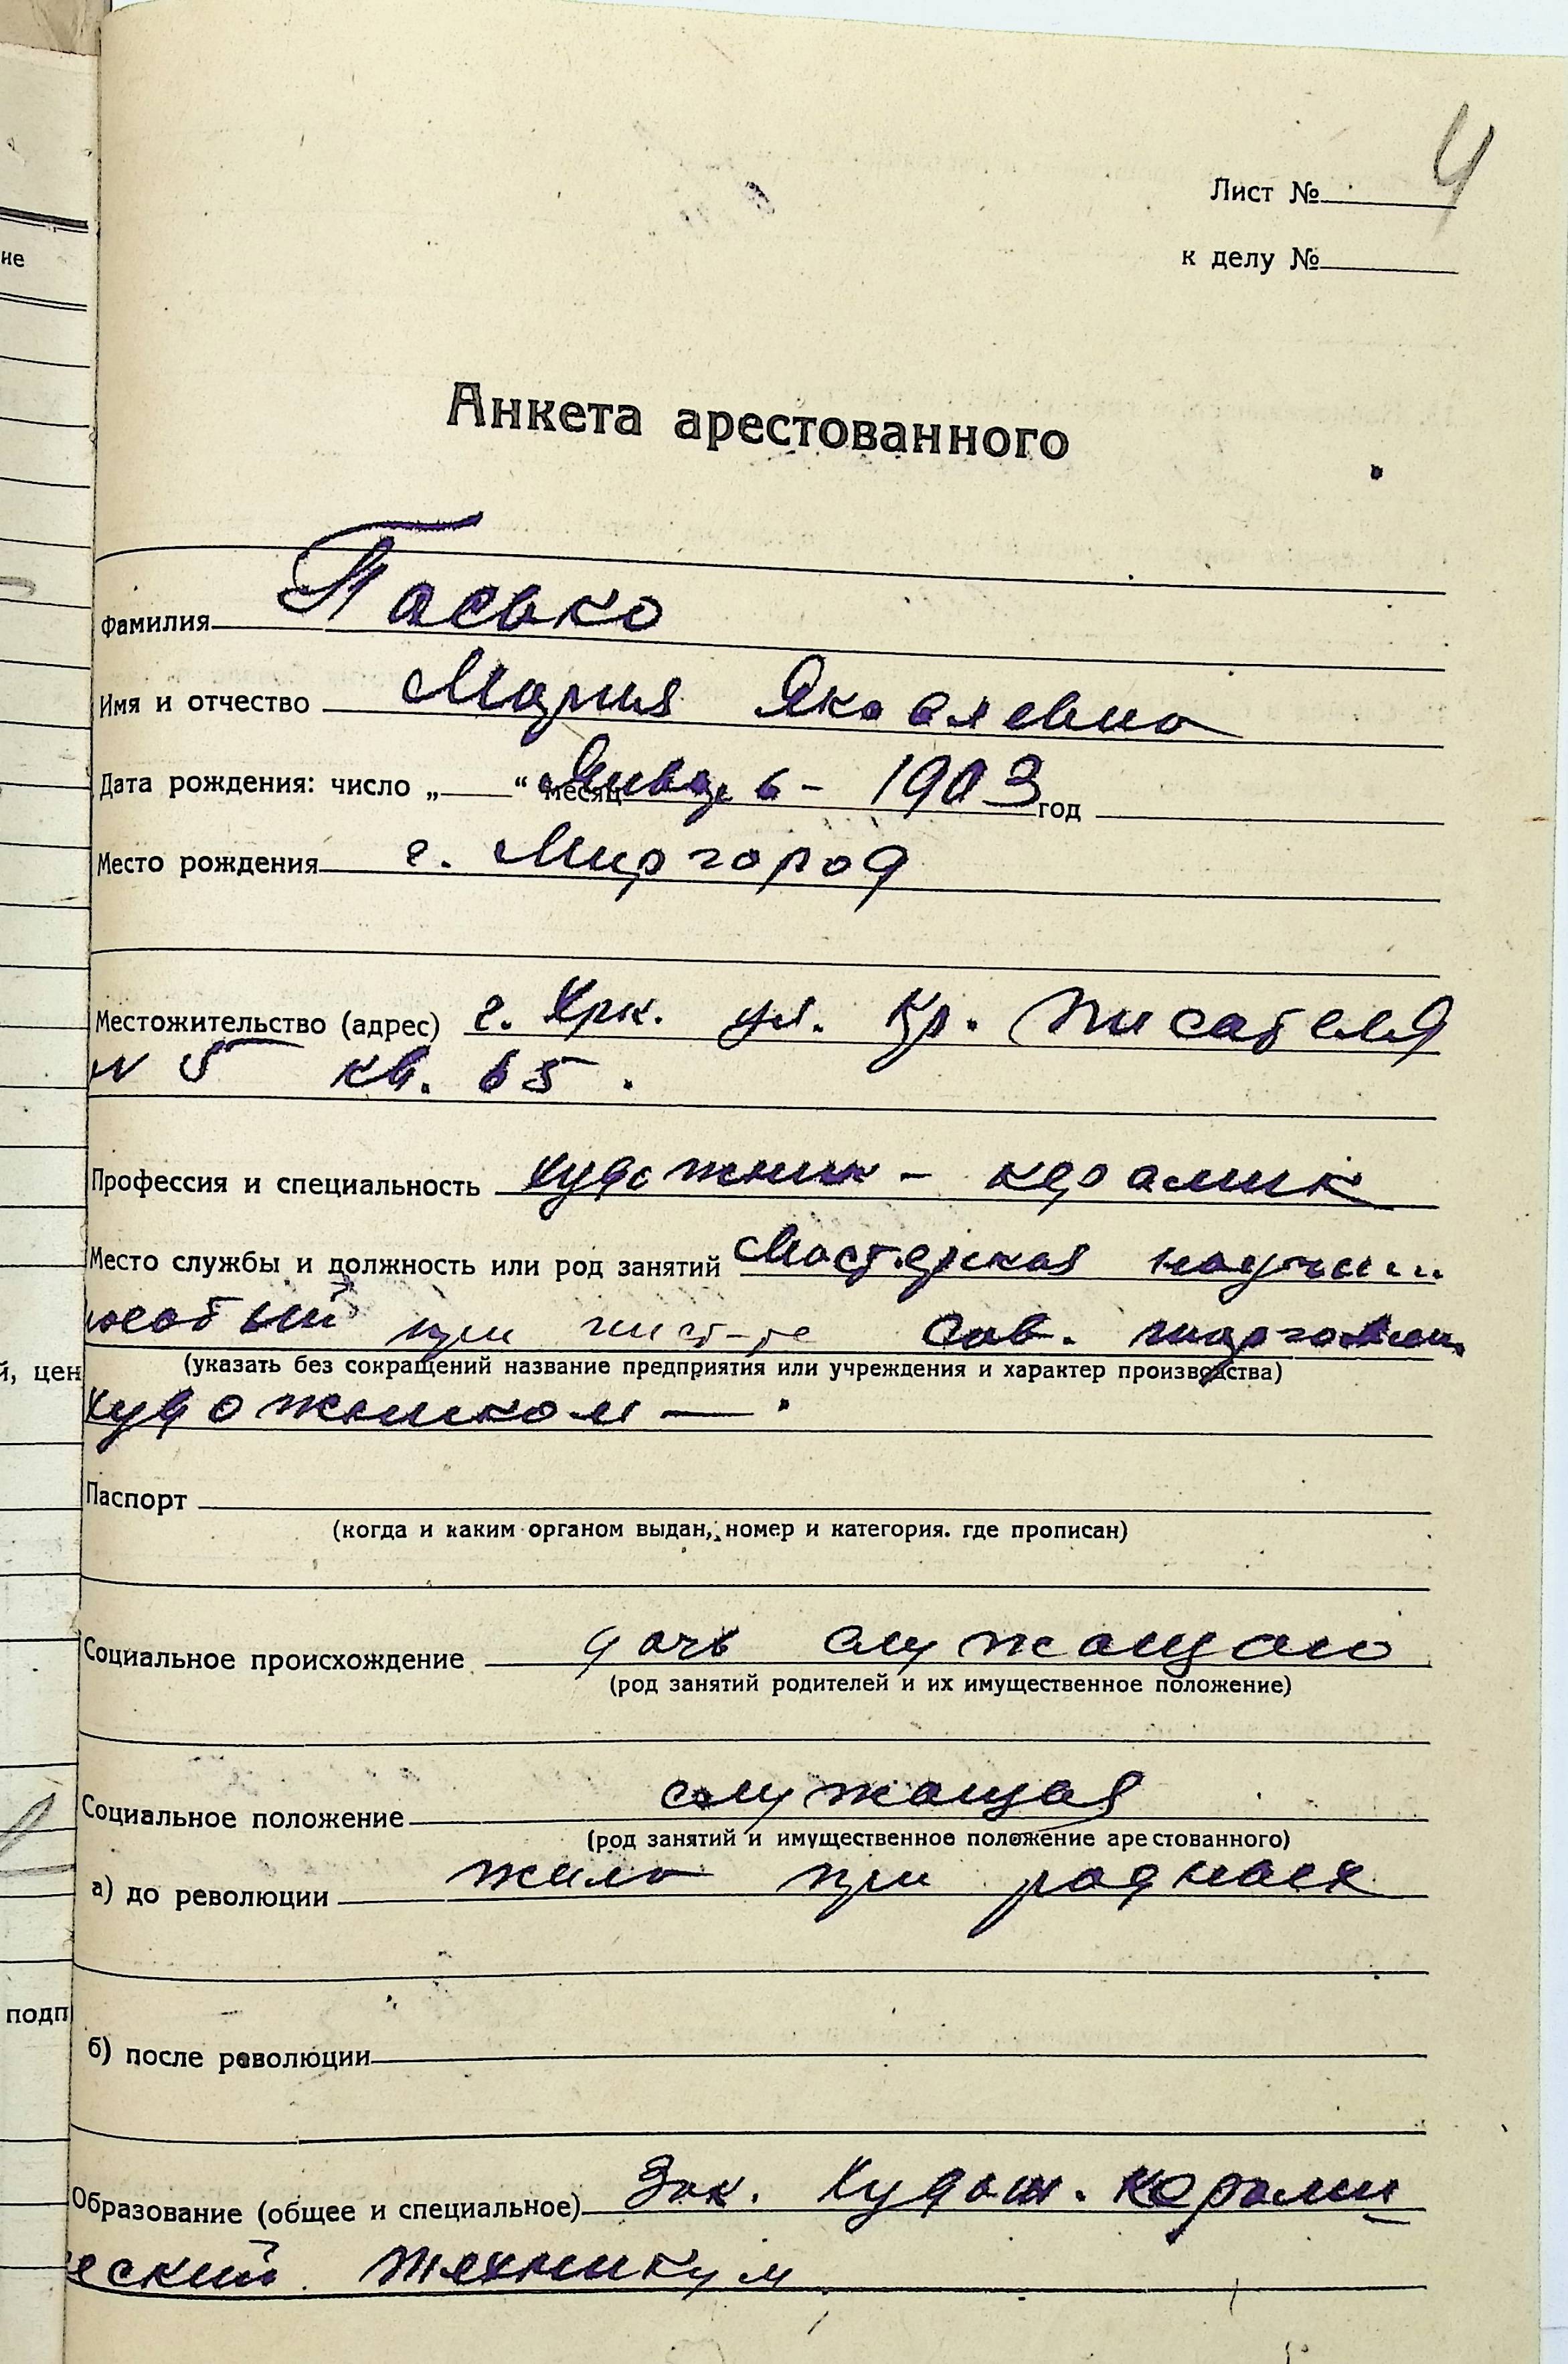 не
й, цен
подп
4
Лист №
к делу №
Анкета арестованного
Фамилия Пасько
Имя и отчество Мария Яковлевна
Дата рождения: число „ “ месяц 6 - 1903 год
Место рождения г. Миргород
Местожительство (адрес) г. Хрк. ул. Кр. Писателя
N 5 кв. 65.
Профессия и специальность художник - керамик
Место службы и должность или род занятий Мастерская
при Сав.
(указать без сокращений название предприятия или учреждения и характер производства)
художником — .
Паспорт
(когда и каким органом выдан, номер и категория. где прописан)
Социальное происхождение дочь служащаго
(род занятий родителей и их имущественное положение)
Социальное положение служащая
(род занятий и имущественное положение арестованного)
а) до революции жила при родных
б) после революции
Образование (общее и специальное) Зак. Худож. керами
еский техникум